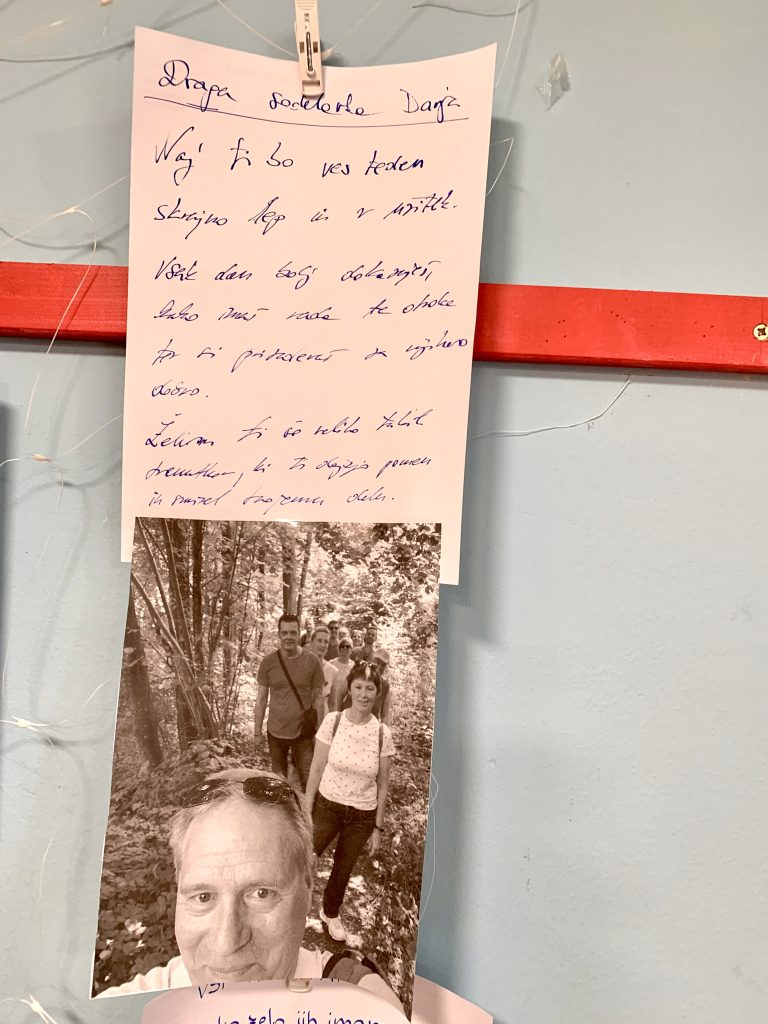 Draga sodelavka Darja
Naj ti bo ves teden
skrajno lep in v užitek.
Vsak dan bolj dokazuješ,
kako imaš rada te otroke
ter si prizadevaš za njihovo
dobro.
Želim ti še veliko takih
trenutkov, ki ti dajejo pomen
in smisel tvojemu delu.
ko zelo jih imam